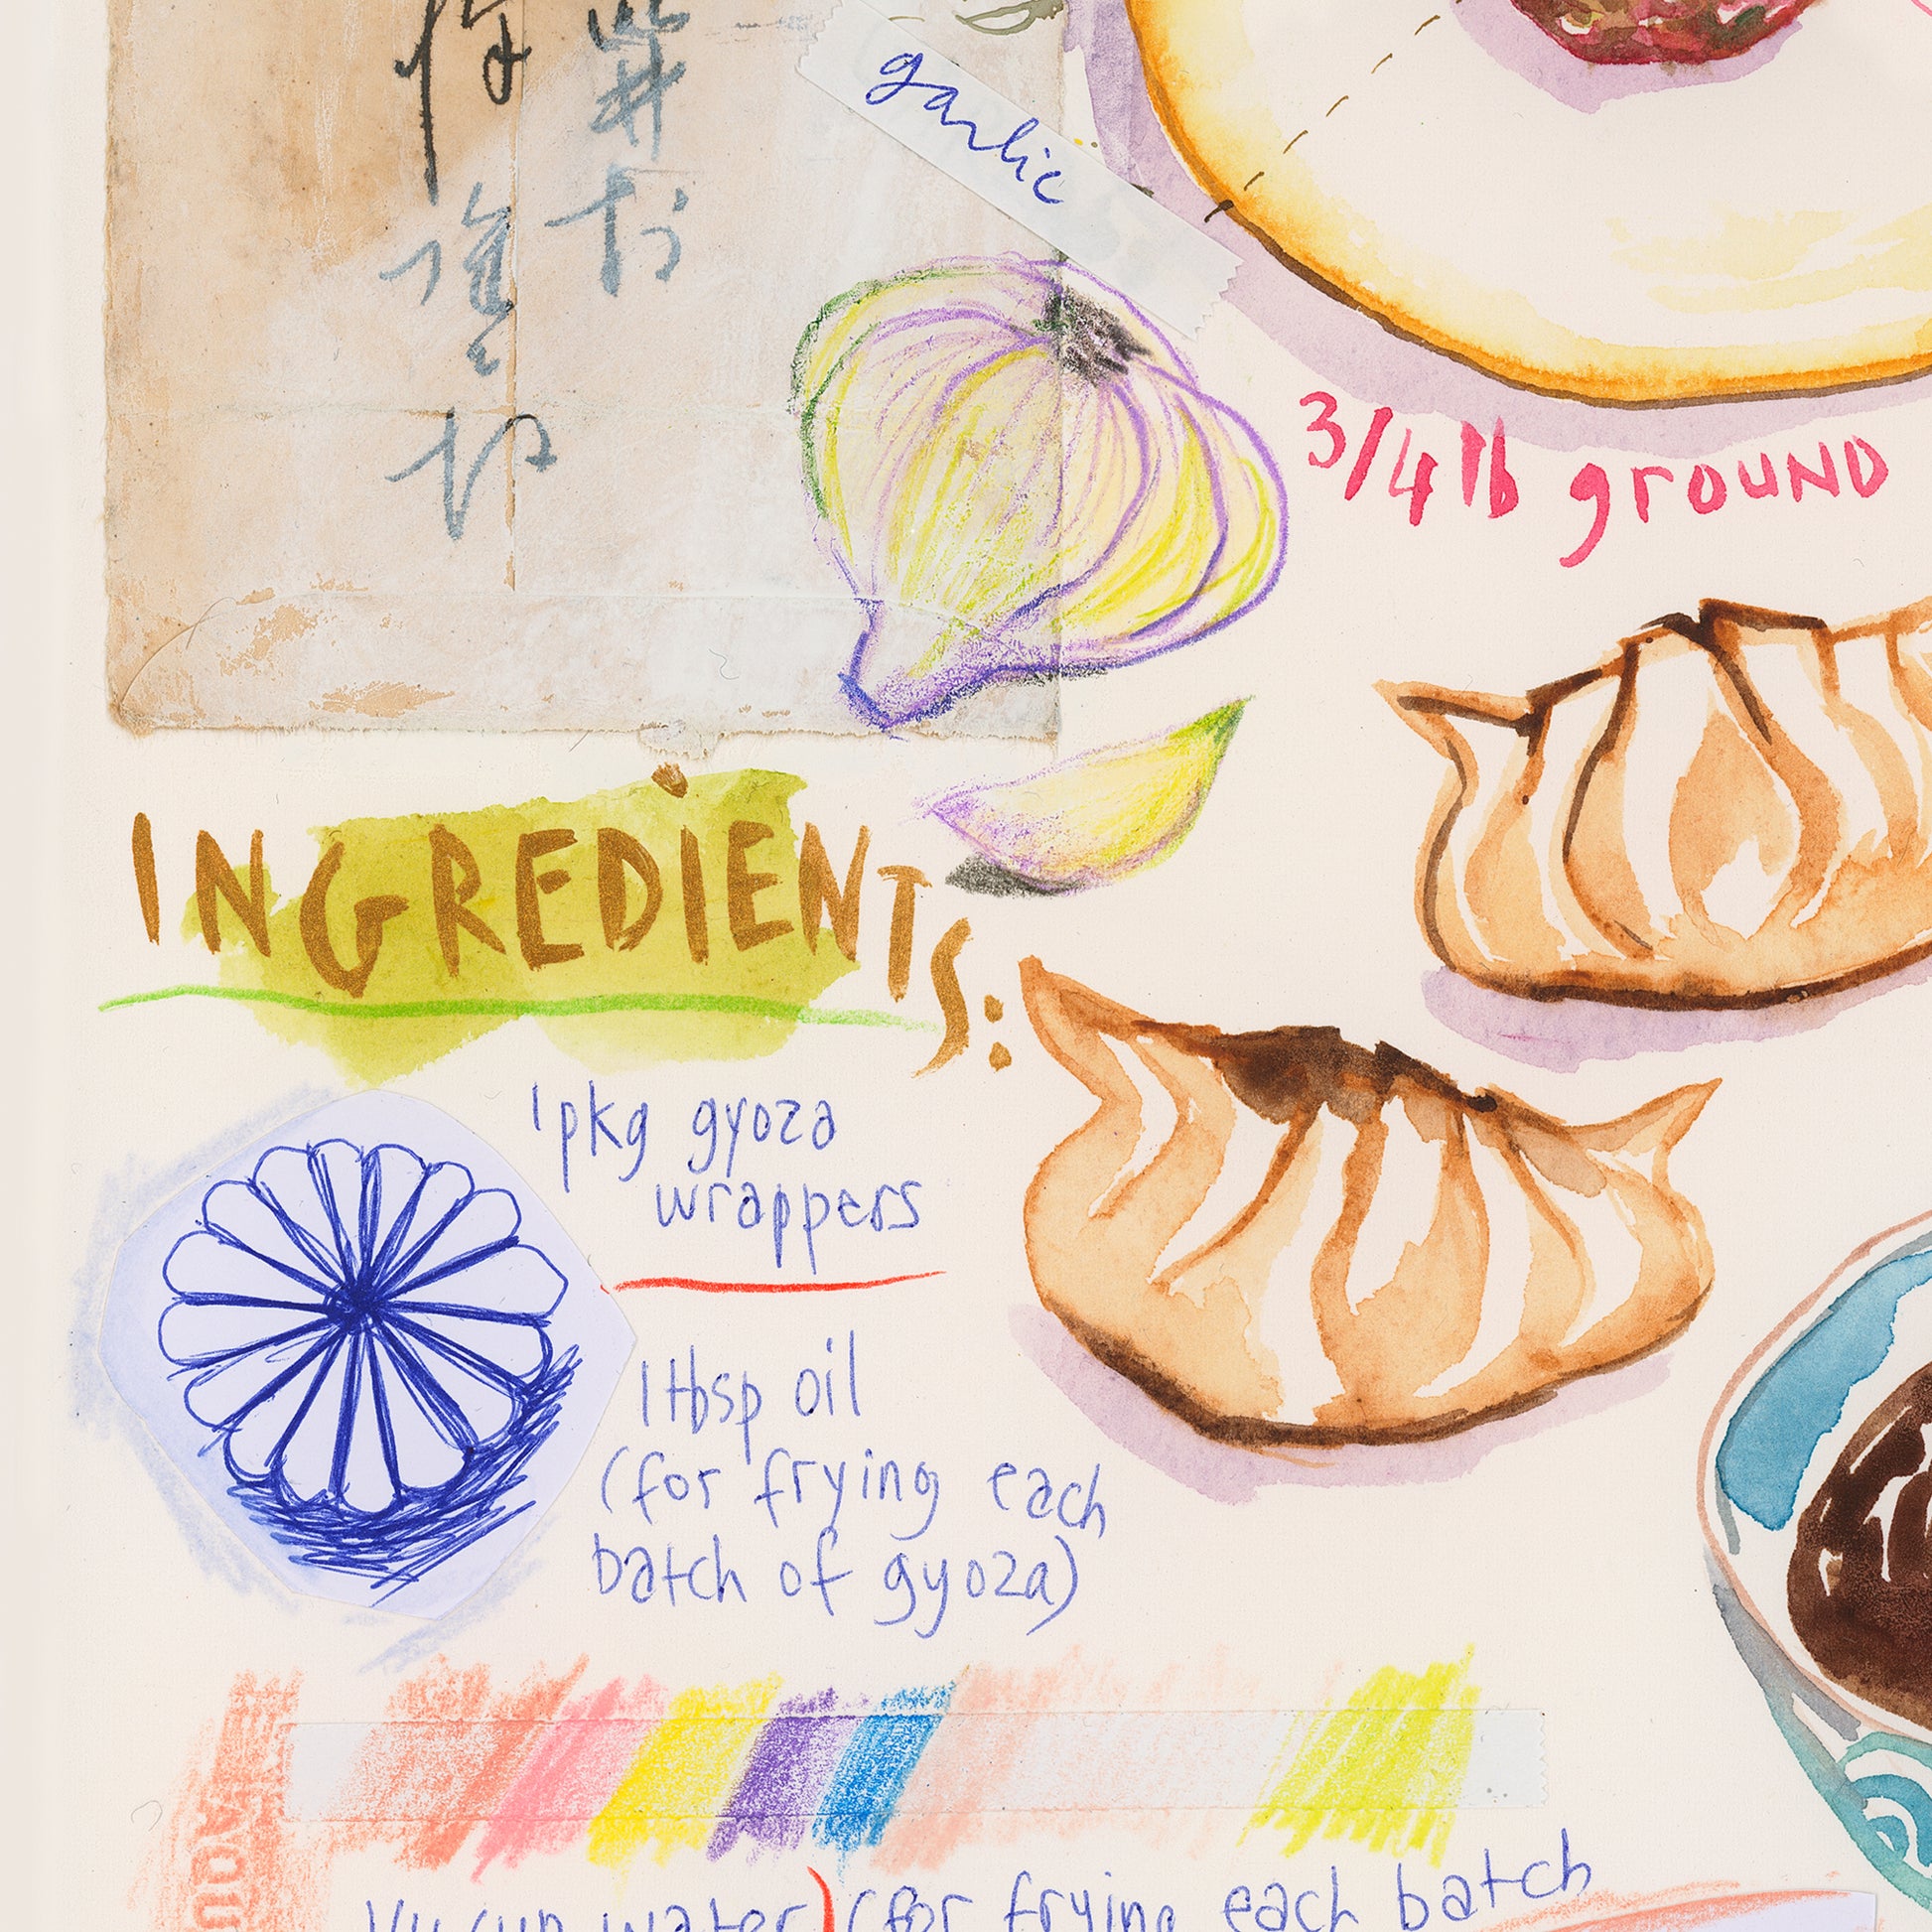 garlic
3/4 lb ground
INGREDIENTS:
1 pkg gyoza
wrappers
1 tbsp oil
(for frying each
batch of gyoza)
1/4 cup water (for frying each batch